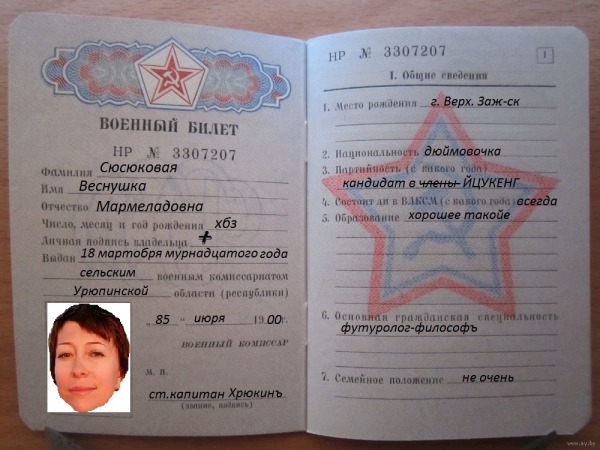 ВОЕННЫЙ БИЛЕТ
НР № 3307207
Фамилия Сюсюковая
Имя Веснушка
Отчество Мармеладовна
Число, месяц и год рождения хбз
Личная подпись владельца +
Выдан 18 мартобря мурнадцатого года
сельским военным комиссариатом
Урюпинской области (республики)
„85 " июря 1900г.
ВОЕННЫЙ КОМИССАР
м. п.
ст.капитан Хрюкинъ
(звание, подпись)
НР № 3307207
1
I. Общие сведения
1. Место рождения г. Верх. Заж-ск
2. Национальность дюймовочка
3. Партийность (с какого года)
кандидат в члены ЙЦУКЕНГ
4. Состоит ли в ВЛКСМ (с какого года) всегда
5. Образование хорошее такойе
6. Основная гражданская специальность
футуролог-философъ
7. Семейное положение не очень
www.ay.by